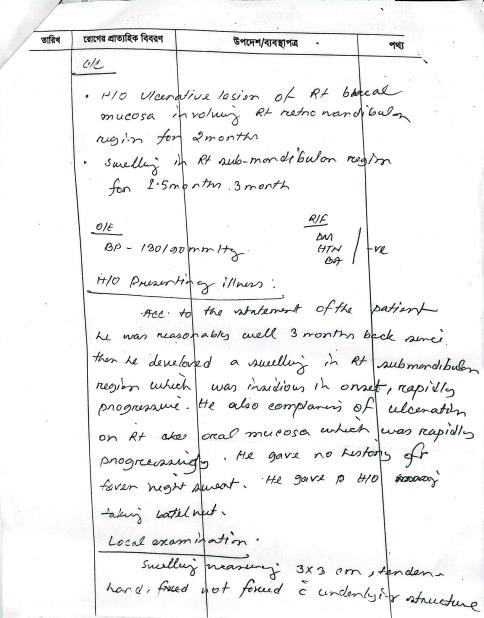 তারিখ রোগের প্রাত্যহিক বিবরণ উপদেশ/ব্যবস্থাপত্র পথ্য
C/C
• H/O Ulcerative lesion of Rt buccal
mucosa involving Rt retromandibular
region for 2 months
• Swelling in Rt sub-mandibular region
for 1.5 months. 3 month
O/E R/F
BP - 130/90 mmHg. DM
HTN -ve
BA
H/O Presenting illness :
Acc. to the statement of the patient
he was reasonably well 3 months back since
then he developed a swelling in Rt submandibular
region which was insidious in onset, rapidly
progressive. He also complaning of ulceration
on Rt oral mucosa which was rapidly
progressively. He gave no history of
fever night sweat. He gave H/O
taking batelnut.
Local examination.
Swelling measuring 3x3 cm, tender
hard, not fixed c̄ underlying structure